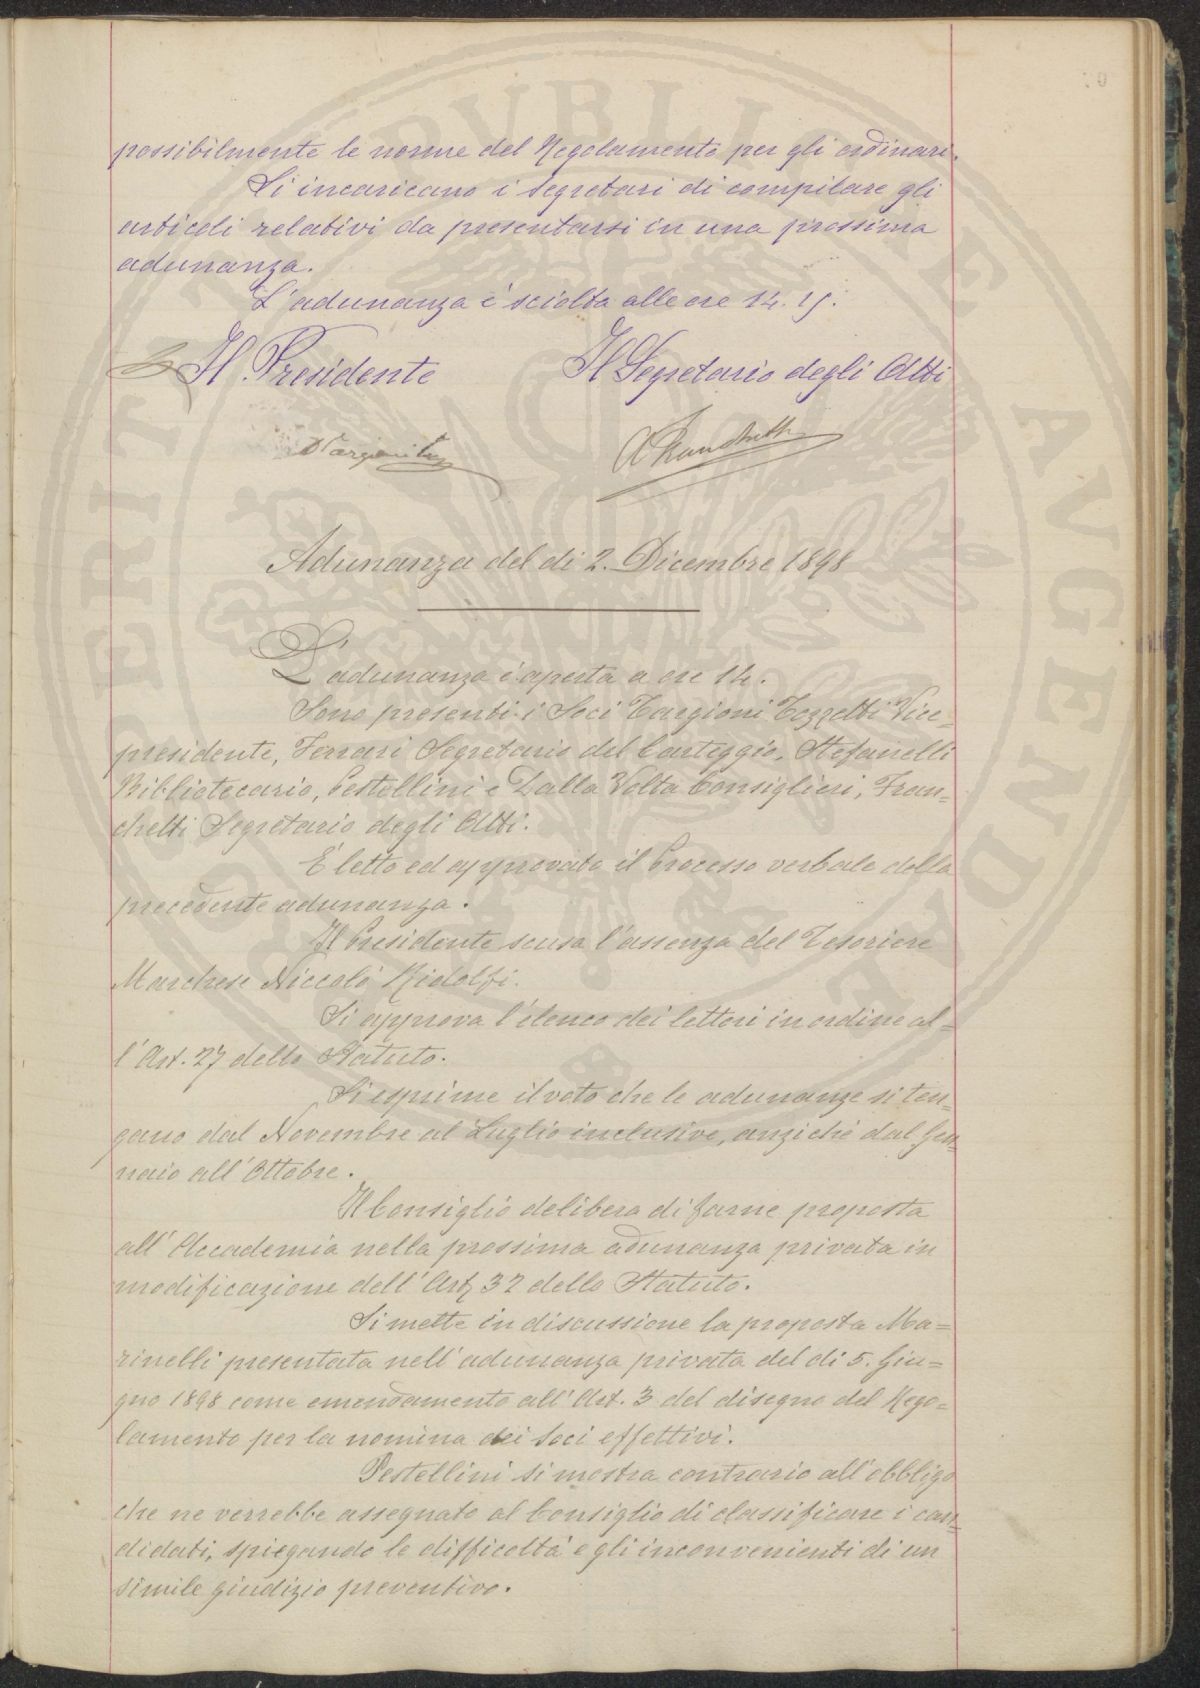 possibilmente le norme del Regolamento per gli ordinari.
Si incaricano i Segretari di compilare gli
articoli relativi da presentarsi in una prossima
adunanza.
L'adunanza è sciolta alle ore 14.15.
Il Presidente Il Segretario degli Atti
Adunanza del dì 2. Dicembre 1898
L'adunanza è aperta a ore 14.
Sono presenti i Soci Targioni Tozzetti Vice=
presidente, Ferrari Segretario del Carteggio, Stefanelli
Bibliotecario, Pestellini e Dalla Volta Consiglieri, Fran=
chetti Segretario degli Atti.
E' letto ed approvato il Processo verbale della
precedente adunanza.
Il Presidente scusa l'assenza del Tesoriere
Marchese Niccolò Ridolfi.
Si approva l'elenco dei lettori in ordine al=
l'Art. 27 dello Statuto.
Si esprime il voto che le adunanze si ten=
gano dal Novembre al Luglio inclusive, anzichè dal Gen=
naio all'Ottobre.
Il Consiglio delibera di farne proposta
all'Accademia nella prossima adunanza privata in
modificazione dell'Art. 32 dello Statuto.
Si mette in discussione la proposta Ma=
rinelli presentata nell'adunanza privata del dì 5. Giu=
gno 1898 come emendamento all'Art. 3 del disegno del Rego=
lamento per la nomina dei Soci effettivi.
Pestellini si mostra contrario all'obbligo
che ne verrebbe assegnato al Consiglio di classificare i can=
didati, spiegando le difficoltà e gli inconvenienti di un
simile giudizio preventivo.